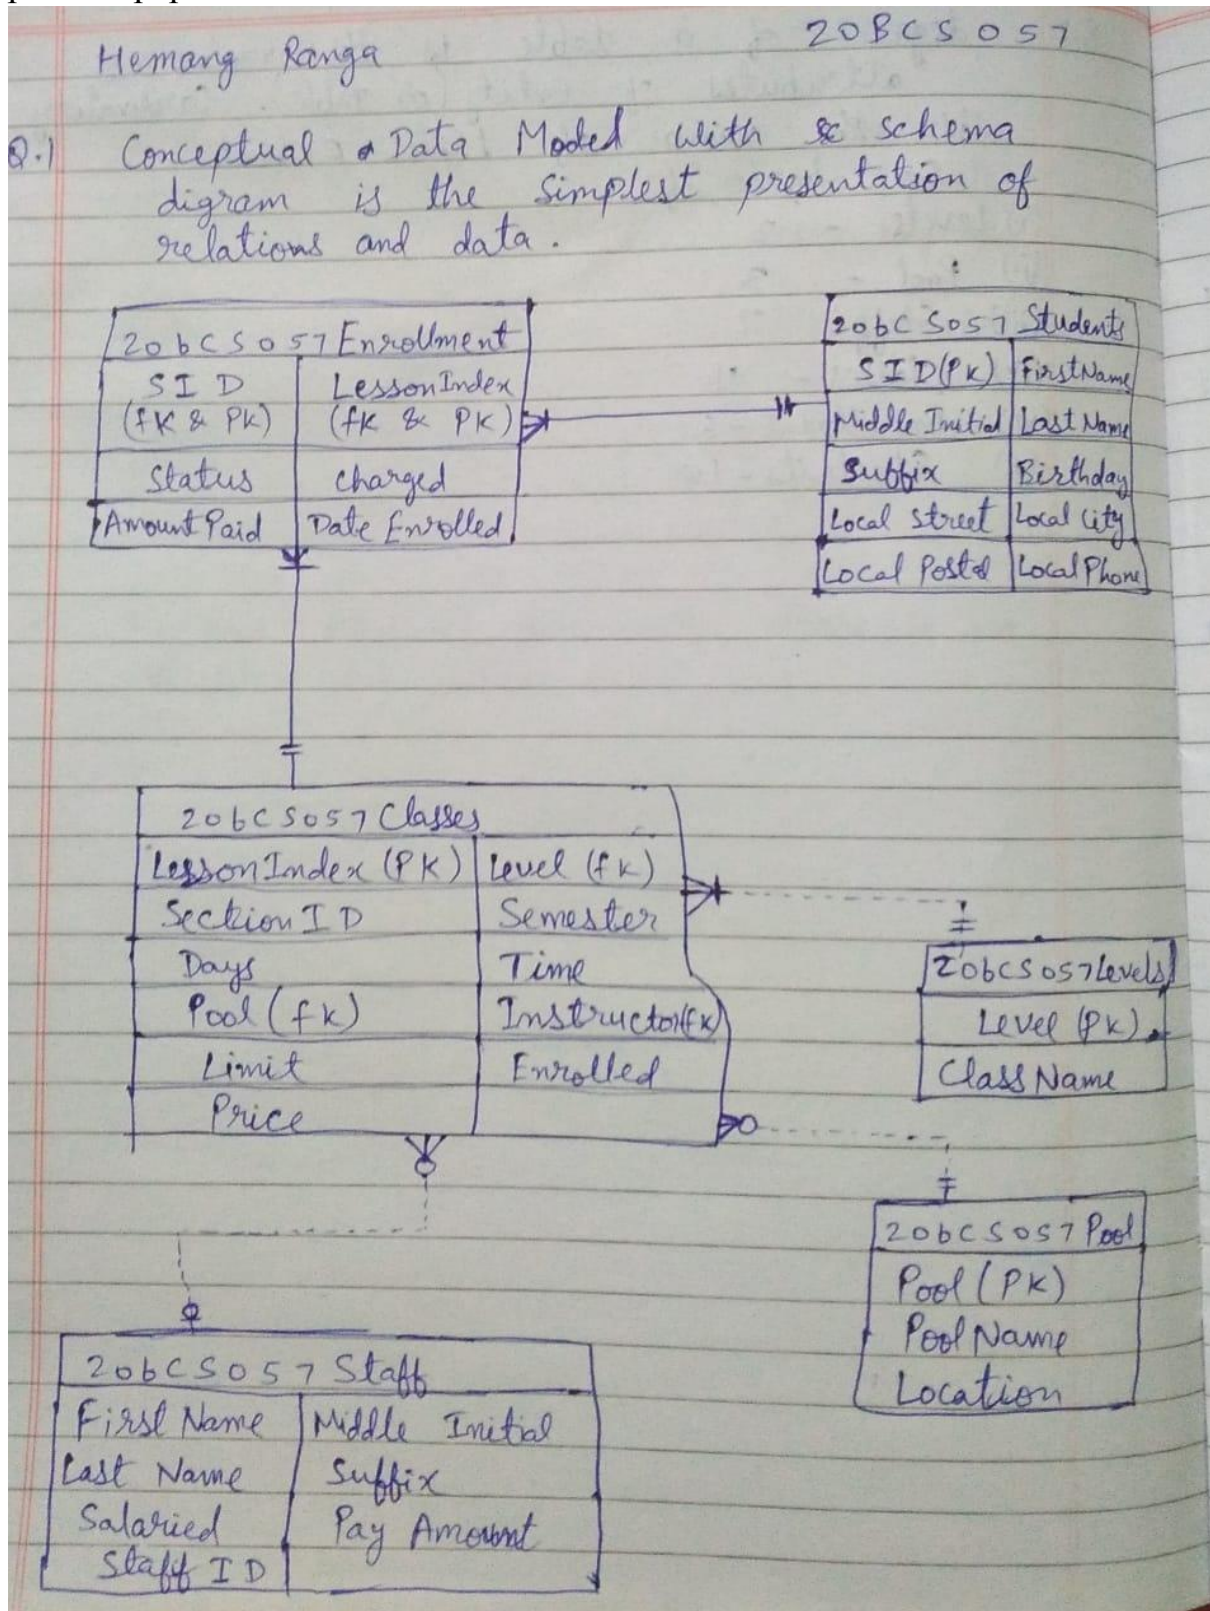 Hemang Ranga 20BCS057
Q.1 Conceptual Data Moded with schema
digram is the simplest presentation of
relations and data.
20bCS057 Enrollment
SID LessonIndex
(fK & PK) (fK & PK)
Status charged
Amount Paid Date Enrolled
20bCS057 Students
SID(PK) FirstName
Middle Initial Last Name
Suffix Birthday
Local Street Local City
Local Postal Local Phone
20bCS057 Classes
LessonIndex (PK) Level (fK)
Section ID Semester
Days Time
Pool (fK) Instructor(fK)
Limit Enrolled
Price
20bCS057 Levels
Level (PK)
Class Name
20bCS057 Pool
Pool (PK)
Pool Name
Location
20bCS057 Staff
First Name Middle Initial
Last Name Suffix
Salaried Pay Amount
Staff ID